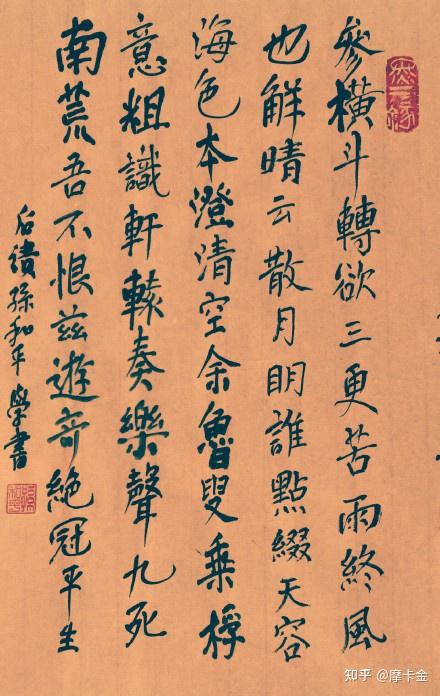 參橫斗轉欲三更苦雨終風
也解晴云散月明誰點綴天容
海色本澄清空余魯叟乘桴
意粗識軒轅奏樂聲九死
南荒吾不恨茲遊奇絕冠平生
后孫和平學書
知乎 @摩卡金